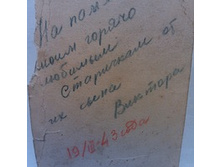 На пам
моим горячо
любимым
Старичкам от
их сына
Виктора